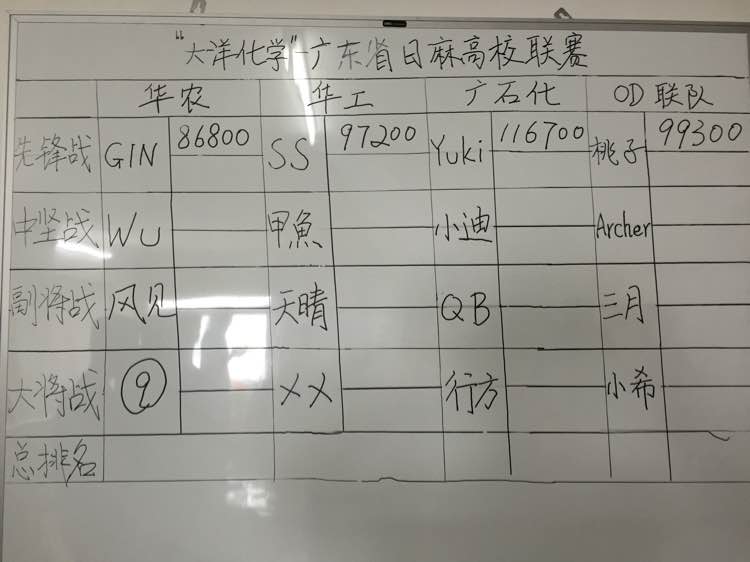 “大洋化学”-广东省日麻高校联赛
华农 华工 广石化 OD联队
先锋战 GIN 86800 SS 97200 Yuki 116700 桃子 99300
中坚战 Wu 甲魚 小迪 Archer
副将战 风见 天晴 QB 三月
大将战 ⑨ XX 行方 小希
总排名